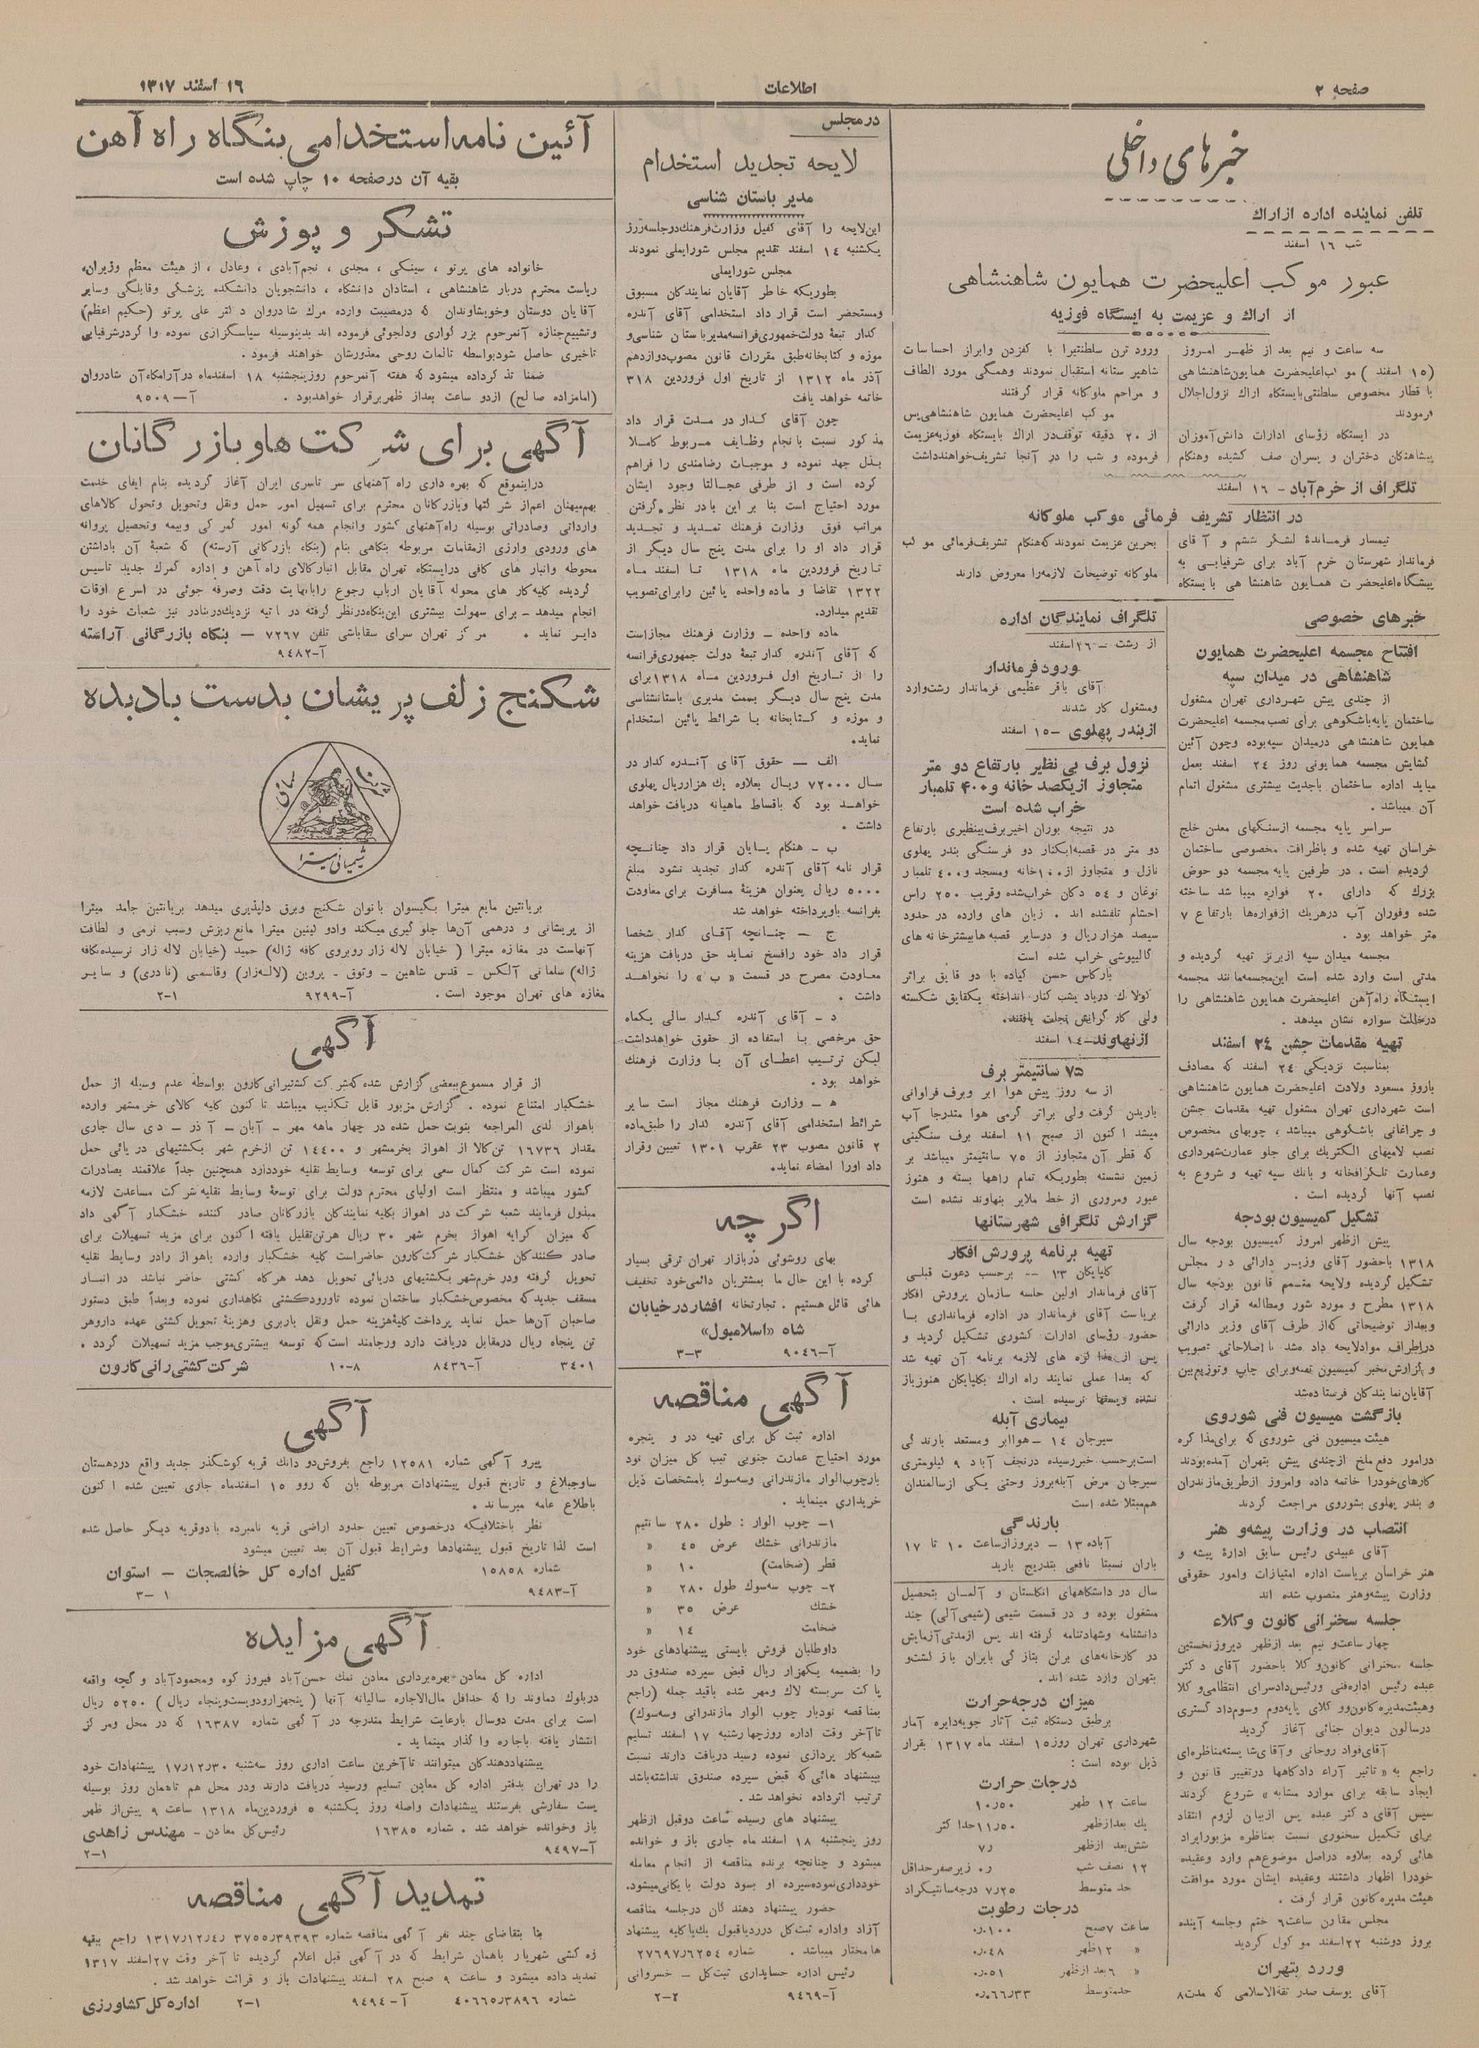 صفحه ۲
اطلاعات
۱۶ اسفند ۱۳۱۷
خبرهای داخلی
تلفن نماینده اداره از اراك
شب ۱۶ اسفند
عبور موکب اعلیحضرت همایون شاهنشاهی
از اراك و عزیمت به ایستگاه فوزیه
سه ساعت و نیم بعد از ظهر امروز
(۱۵ اسفند) موکب اعلیحضرت همایون شاهنشاهی
با قطار مخصوص سلطنتی بایستگاه اراك نزول اجلال
فرمودند
در ایستگاه رؤسای ادارات دانش آموزان
پیشاهنگان دختران و پسران صف کشیده وهنگام
ورود ترن سلطنتی را با کفزدن وابراز احساسات
شاهپرستانه استقبال نمودند وهمگی مورد الطاف
و مراحم ملوکانه قرار گرفتند
موکب اعلیحضرت همایون شاهنشاهی پس
از ۲۰ دقیقه توقف در اراك بایستگاه فوزیه عزیمت
فرموده و شب را در آنجا تشریف خواهند داشت
تلگراف از خرم آباد - ۱۶ اسفند
در انتظار تشریف فرمائی موکب ملوکانه
تیمسار فرماندهٔ لشگر ششم و آقای
فرماندار شهرستان خرم آباد برای شرفیابی به
پیشگاه اعلیحضرت همایون شاهنشاهی بایستگاه
بحرین عزیمت نمودند که هنگام تشریف فرمائی موکب
ملوکانه توضیحات لازمه را معروض دارند
خبرهای خصوصی
افتتاح مجسمه اعلیحضرت همایون
شاهنشاهی در میدان سپه
از چندی پیش شهرداری تهران مشغول
ساختمان پایه باشکوهی برای نصب مجسمه اعلیحضرت
همایون شاهنشاهی درمیدان سپه بوده وچون آئین
گشایش مجسمه همایونی روز ۲۴ اسفند بعمل
میاید اداره ساختمان باجدیت بیشتری مشغول اتمام
آن میباشد .
سراسر پایه مجسمه ازسنگهای معدن خلج
خراسان تهیه شده و باظرافت مخصوصی ساختمان
گردیده است . در طرفین پایه مجسمه دو حوض
بزرك که دارای ۲۰ فواره میباشد ساخته
شده وفوران آب درهریك ازفواره‌ها بارتفاع ۷
متر خواهد بود .
مجسمه میدان سپه ازبرنز تهیه گردیده و
مدتی است وارد شده است این مجسمه مانند مجسمه
ایستگاه راه آهن اعلیحضرت همایون شاهنشاهی را
درحالت سواره نشان میدهد .
تهیه مقدمات جشن ۲۴ اسفند
بمناسبت نزدیکی ۲۴ اسفند که مصادف
باروز مسعود ولادت اعلیحضرت همایون شاهنشاهی
است شهرداری تهران مشغول تهیه مقدمات جشن
و چراغانی باشکوهی میباشد ، چوبهای مخصوص
نصب لامپهای الکتریك برای جلو عمارت شهرداری
وعمارت تلگرافخانه و بانك سپه تهیه و شروع به
نصب آنها گردیده است .
تشکیل کمیسیون بودجه
پیش ازظهر امروز کمیسیون بودجه سال
۱۳۱۸ باحضور آقای وزیر دارائی در مجلس
تشکیل گردیده ولایحه متمم قانون بودجه سال
۱۳۱۸ مطرح و مورد شور ومطالعه قرار گرفت
وبعداز توضیحاتی که از طرف آقای وزیر دارائی
دراطراف مواد لایحه داده شد با اصلاحاتی تصویب
و گزارش مخبر کمیسیون تهیه وبرای چاپ وتوزیع بین
آقایان نمایندگان فرستاده شد
بازگشت میسیون فنی شوروی
هیئت میسیون فنی شوروی که برای مذاکره
درامور دفع ملخ ازچندی پیش بتهران آمده بودند
کارهای خودرا خاتمه داده وامروز ازطریق مازندران
و بندر پهلوی بشوروی مراجعت کردند
انتصاب در وزارت پیشه و هنر
آقای عبیدی رئیس سابق ادارهٔ پیشه و
هنر خراسان بریاست اداره امتیازات وامور حقوقی
وزارت پیشه وهنر منصوب شده اند
جلسه سخنرانی کانون وکلاء
چهار ساعت و نیم بعد ازظهر دیروز نخستین
جلسه سخنرانی کانون وکلا باحضور آقای دکتر
عبده رئیس اداره فنی ورئیس دادسرای انتظامی وکلا
وهیئت مدیره کانون وو کلای پایه دوم وسوم دادگستری
درسالون دیوان جنائی آغاز گردید
آقای فواد روحانی و آقای شایسته مناظره‌ای
راجع به « تاثیر آراء دادگاهها درتغییر قانون و
ایجاد سابقه برای موارد مشابه » شروع کردند
سپس آقای دکتر عبده پس ازبیان لزوم انتقاد
برای تکمیل سخنوری نسبت بمناظره مزبور ایراد
هائی کرده بعلاوه دراصل موضوع هم وارد وعقیده
خودرا اظهار داشتند وعقیده ایشان مورد موافقت
هیئت مدیره کانون قرار گرفت .
مجلس مقارن ساعت ۶ ختم وجلسه آینده
بروز دوشنبه ۲۲ اسفند موکول گردید
ورود بتهران
آقای یوسف صدر ثقة‌الاسلامی که مدت ۸
تلگراف نمایندگان اداره
از رشت – ۲۶ اسفند
ورود فرماندار
آقای باقر عظیمی فرماندار رشت وارد
ومشغول کار شدند
از بندر پهلوی – ۱۵ اسفند
نزول برف بی نظیر بارتفاع دو متر
متجاوز از یکصد خانه و ۴۰۰ تلمبار
خراب شده است
در نتیجه بوران اخیر برف بینظیری بارتفاع
دو متر در قصبه ابکنار دو فرسنگی بندر پهلوی
نازل و متجاوز از ۱۰۰ خانه ومسجد و ۴۰۰ تلمبار
نوغان و ۵۴ دکان خراب شده وقریب ۲۵۰ راس
احشام تلف شده اند . زیان های وارده در حدود
سیصد هزار ریال و درسایر قصبه ها بیشتر خانه های
گالیپوشی خراب شده است
بارکاس حسن کیاده با دو قایق براثر
کولاك دریاد بشب کنار انداخته یکقایق شکسته
ولی کارگرانش نجات یافتند.
از نهاوند – ۱۴ اسفند
۷۵ سانتیمتر برف
از سه روز پیش هوا ابر وبرف فراوانی
باریدن گرفت ولی براثر گرمی هوا متدرجا آب
میشد اکنون از صبح ۱۱ اسفند برف سنگینی
که قطر آن متجاوز از ۷۵ سانتیمتر میباشد بر
زمین نشسته بطوریکه تمام راهها بسته و هنوز
عبور ومروری از خط ملایر بنهاوند نشده است
گزارش تلگرافی شهرستانها
تهیه برنامه پرورش افکار
گلپایگان ۱۳ -- برحسب دعوت قبلی
آقای فرماندار اولین جلسه سازمان پرورش افکار
بریاست آقای فرماندار در اداره فرمانداری با
حضور رؤسای ادارات کشوری تشکیل گردید و
پس از مذاکره های لازمه برنامه آن تهیه شد
که بعدا عملی نمایند راه اراك بگلپایگان هنوز باز
نشده وپستها نرسیده است .
بیماری آبله
سیرجان ۱۴ – هوا ابر ومستعد بارندگی
است برحسب خبر رسیده درنجف آباد ۹ کیلومتری
سیرجان مرض آبله بروز وحتی یکی ازسالمندان
هم مبتلا شده است
بارندگی
آباده ۱۳ – دیروز از ساعت ۱۰ تا ۱۷
باران نسبتا نافعی بتدریج بارید
سال در دانشگاههای انگلستان و آلمان بتحصیل
مشغول بوده و در قسمت شیمی (شیمی آلی) چند
دانشنامه وشهادتنامه گرفته اند پس ازمدتی آزمایش
در کارخانه‌های برلن بتازگی بایران بازگشت و
بتهران وارد شده اند .
میزان درجه حرارت
برطبق دستگاه ثبت آثار جویه دایره آمار
شهرداری تهران روز ۱۵ اسفند ماه ۱۳۱۷ بقرار
ذیل بوده است :
درجات حرارت
ساعت ۱۲ ظهر ۱۰٫۵۰
یك بعد از ظهر ۱۱٫۵۰ حداکثر
شش بعد از ظهر ۷٫
۱۲ نصف شب ۰٫ زیر صفر حداقل
حد متوسط ۷٫۲۵ درجه سانتیگراد
درجات رطوبت
ساعت ۷ صبح ۰٫۱۰۰
« ۱۲ ظهر ۰٫۴۸
« ۶ بعد از ظهر ۰٫۵۱
حد متوسط ۰٫۶۶٫۳۳
در مجلس
لایحه تجدید استخدام
مدیر باستان شناسی
این لایحه را آقای کفیل وزارت فرهنك در جلسه روز
یکشنبه ۱۴ اسفند تقدیم مجلس شورایملی نمودند
مجلس شورایملی
بطوریکه خاطر آقایان نمایندگان مسبوق
ومستحضر است قرار داد استخدامی آقای آندره
گدار تبعهٔ دولت جمهوری فرانسه مدیر باستان شناسی و
موزه و کتابخانه طبق مقررات قانون مصوب دوازدهم
آذر ماه ۱۳۱۲ از تاریخ اول فروردین ۳۱۸
خاتمه خواهد یافت
چون آقای گدار در مدت قرار داد
مذکور نسبت بانجام وظایف مربوط کاملا
بذل جهد نموده و موجبات رضامندی را فراهم
کرده است و از طرفی عجالتا وجود ایشان
مورد احتیاج است بنا بر این با در نظر گرفتن
مراتب فوق وزارت فرهنك تمدید و تجدید
قرار داد او را برای مدت پنج سال دیگر از
تاریخ فروردین ماه ۱۳۱۸ تا اسفند ماه
۱۳۲۲ تقاضا و ماده واحده پائین را برای تصویب
تقدیم میدارد.
ماده واحده – وزارت فرهنك مجاز است
که آقای آندره گدار تبعهٔ دولت جمهوری فرانسه
را از تاریخ اول فروردین ماه ۱۳۱۸ برای
مدت پنج سال دیگر بسمت مدیری باستانشناسی
و موزه و کتابخانه با شرائط پائین استخدام
نماید.
الف – حقوق آقای آندره گدار در
سال ۷۲۰۰۰ ریال بعلاوه یك هزار ریال پهلوی
خواهد بود که باقساط ماهیانه دریافت خواهد
داشت .
ب – هنگام پایان قرار داد چنانچه
قرار نامه آقای آندره گدار تجدید نشود مبلغ
۵۰۰۰ ریال بعنوان هزینهٔ مسافرت برای معاودت
بفرانسه باو پرداخته خواهد شد
ج – چنانچه آقای گدار شخصا
قرار داد خود رافسخ نماید حق دریافت هزینه
معاودت مصرح در قسمت « ب » را نخواهد
داشت .
د – آقای آندره گدار سالی یکماه
حق مرخصی با استفاده از حقوق خواهد داشت
لیکن ترتیب اعطای آن با وزارت فرهنك
خواهد بود .
ه – وزارت فرهنك مجاز است سایر
شرائط استخدامی آقای آندره گدار را طبق ماده
۲ قانون مصوب ۲۳ عقرب ۱۳۰۱ تعیین وقرار
داد اورا امضاء نماید.
اگر چه
بهای روشوئی در بازار تهران ترقی بسیار
کرده با این حال ما بمشتریان دائمی خود تخفیف
هائی قائل هستیم . تجارتخانه افشار در خیابان
شاه «اسلامبول»
آ–۹۰۴۶ ۳–۳
آگهی مناقصه
اداره ثبت کل برای تهیه در و پنجره
مورد احتیاج عمارت جنوبی ثبت کل میزان نود
بارچوب الوار مازندرانی وسه سوك بامشخصات ذیل
خریداری مینماید .
۱– چوب الوار : طول ۲۸۰ سانتیم
مازندرانی خشك عرض ۴۵ «
قطر (ضخامت) ۱۰ «
۲– چوب سه سوك طول ۲۸۰ «
خشك عرض ۳۵ «
ضخامت ۱۴ «
داوطلبان فروش بایستی پیشنهادهای خود
را بضمیمه یکهزار ریال قبض سپرده صندوق در
پاکت سربسته لاك ومهر شده باقید جمله (راجع
بمناقصه نودبار چوب الوار مازندرانی وسه سوك)
تاآخر وقت اداره روز چهارشنبه ۱۷ اسفند تسلیم
شعبه کار پردازی نموده رسید دریافت دارند نسبت
بپیشنهاد هائی که قبض سپرده صندوق نداشته باشد
ترتیب اثر داده نخواهد شد.
پیشنهاد های رسیده ساعت دو قبل ازظهر
روز پنجشنبه ۱۸ اسفند ماه جاری باز و خوانده
میشود و چنانچه برنده مناقصه از انجام معامله
خودداری نموده سپرده او بسود دولت بایگانی میشود.
حضور پیشنهاد دهندگان درجلسه مناقصه
آزاد واداره ثبت کل دررد یا قبول یك یا کلیه پیشنهاد
ها مختار میباشد . شماره ۲۷۶۹۷٫۶۲۵۴
رئیس اداره حسابداری ثبت کل – خسروانی
آ–۹۴۶۹ ۲–۲
آئین نامه استخدامی بنگاه راه آهن
بقیه آن در صفحه ۱۰ چاپ شده است
تشکر و پوزش
خانواده های پرتو ، سینکی ، مجدی ، نجم آبادی ، وعادل ، از هیئت معظم وزیران،
ریاست محترم دربار شاهنشاهی ، استادان دانشگاه ، دانشجویان دانشکده پزشکی وقابلگی وسایر
آقایان دوستان وخویشاوندان که درمصیبت وارده مرك شادروان دکتر علی پرتو (حکیم اعظم)
وتشییع جنازه آنمرحوم بزرگواری ودلجوئی فرموده اند بدینوسیله سپاسگزاری نموده واگر درشرفیابی
تاخیری حاصل شود بواسطه تالمات روحی معذورشان خواهند فرمود .
ضمنا تذکر داده میشود که هفته آنمرحوم روز پنجشنبه ۱۸ اسفندماه در آرامگاه آن شادروان
(امامزاده صالح) از دو ساعت بعداز ظهر برقرار خواهد بود . آ–۹۵۰۹
آگهی برای شرکت ها و بازرگانان
دراینموقع که بهره داری راه آهنهای سر تاسری ایران آغاز گردیده بنام ایفای خدمت
بهم‌میهنان اعم از شرکتها وبازرگانان محترم برای تسهیل امور حمل ونقل وتحویل وتحول کالاهای
وارداتی وصادراتی بوسیله راه‌آهنهای کشور وانجام همه گونه امور گمرکی وبیمه وتحصیل پروانه
های ورودی وارزی ازمقامات مربوطه بنگاهی بنام (بنگاه بازرگانی آرسته) که شعبهٔ آن باداشتن
محوطه وانبار های کافی درایستگاه تهران مقابل انبارکالای راه آهن و اداره گمرك جدید تاسیس
گردیده کلیه کار های محوله آقایان ارباب رجوع رابانهایت دقت وصرفه جوئی در اسرع اوقات
انجام میدهد – برای سهولت بیشتری این بنگاه درنظر گرفته در آتیه نزدیك در بنادر نیز شعبات خود را
دایر نماید . مرکز تهران سرای سقاباشی تلفن ۷۲۶۷ – بنگاه بازرگانی آراسته
آ–۹۴۸۲
شکنج زلف پریشان بدست باد بده
شیمیائی میترا
بریانتین مایع میترا بگیسوان بانوان شکنج وبرق دلپذیری میدهد بریانتین جامد میترا
از پریشانی و درهمی آن‌ها جلوگیری میکند وادو لینین میترا مانع ریزش وسبب نرمی و لطافت
آنهاست در مغازه میترا ( خیابان لاله زار روبروی کافه ژاله) حمید (خیابان لاله زار نرسیده بکافه
ژاله) سلمانی آلکس – قدس شاهین – وثوق – پروین (لاله‌زار) وقاسمی (نادری) و سایر
مغازه های تهران موجود است . آ–۹۲۹۹ ۱–۲
آگهی
از قرار مسموع ببعضی گزارش شده که شرکت کشتیرانی کارون بواسطه عدم وسیله از حمل
خشکبار امتناع نموده . گزارش مزبور قابل تکذیب میباشد تاکنون کلیه کالای خرمشهر وارده
باهواز لدی المراجعه بنوبت حمل شده در چهار ماهه مهر – آبان – آذر – دی سال جاری
مقدار ۱۶۷۳۶ تن کالا از اهواز بخرمشهر و ۱۴۴۰۰ تن ازخرم شهر بکشتیهای دریائی حمل
نموده است شرکت کمال سعی برای توسعه وسایط نقلیه خود دارد همچنین جداً علاقمند بصادرات
کشور میباشد و منتظر است اولیای محترم دولت برای توسعهٔ وسایط نقلیه شرکت مساعدت لازمه
مبذول فرمایند شعبه شرکت در اهواز بکلیه نمایندگان بازرگانان صادر کننده خشکبار آگهی داد
که میزان کرایه اهواز بخرم شهر ۳۰ ریال هر تن تقلیل یافته اکنون برای مزید تسهیلات برای
صادر کنندگان خشکبار شرکت کارون حاضر است کلیه خشکبار وارده باهواز رادر وسایط نقلیه
تحویل گرفته ودر خرم‌شهر بکشتیهای دریائی تحویل دهد هرگاه کشتی حاضر نباشد در انبار
مسقف جدید که مخصوص خشکبار ساختمان نموده تاورود کشتی نگاهداری نموده وبعداً طبق دستور
صاحبان آن‌ها حمل نماید پرداخت کلیهٔ هزینه حمل ونقل باربری وهزینهٔ تحویل کشتی عهده داروهر
تن پنجاه ریال درمقابل دریافت دارد ورجامند است که توسعه بیشتری موجب مزید تسهیلات گردد .
۳۴۰۱ آ–۸۴۳۶ ۸–۱۰ شرکت کشتی رانی کارون
آگهی
پیرو آگهی شماره ۱۲۵۸۱ راجع بفروش دو دانك قریه کوشگذر جدید واقع دردهستان
ساوجبلاغ و تاریخ قبول پیشنهادات مربوطه بان که روو ۱۵ اسفندماه جاری تعیین شده اکنون
باطلاع عامه میرساند .
نظر باختلافیکه درخصوص تعیین حدود اراضی قریه نامبرده بادوقریه دیگر حاصل شده
است لذا تاریخ قبول پیشنهادها وشرایط قبول آن بعد تعیین میشود
شماره ۱۵۸۵۸ کفیل اداره کل خالصجات – استوان
آ–۹۴۸۳ ۱–۳
آگهی مزایده
اداره کل معادن –بهره برداری معادن نمك حسن آباد فیروز کوه ومحمودآباد و گچه واقعه
دربلوك دماوند را که حداقل مال‌الاجاره سالیانه آنها ( پنجهزارودویست وپنجاه ریال ) ۵۲۵۰ ریال
است برای مدت دوسال بارعایت شرایط مندرجه در آگهی شماره ۱۶۳۸۷ که در محل ومرکز
انتشار یافته باجاره واگذار مینماید .
پیشنهاد دهندگان میتوانند تاآخرین ساعت اداری روز سه‌شنبه ۱۷٫۱۲٫۳۰ پیشنهادات خود
را در تهران بدفتر اداره کل معادن تسلیم ورسید دریافت دارند ودر محل هم تاهمان روز بوسیله
پست سفارشی بفرستند پیشنهادات واصله روز یکشنبه ۵ فروردین ماه ۱۳۱۸ ساعت ۹ پیش از ظهر
باز وخوانده خواهد شد . شماره ۱۶۳۸۵ رئیس کل معادن – مهندس زاهدی
آ–۹۴۹۷ ۱–۲
تمدید آگهی مناقصه
بنا بتقاضای چند نفر آگهی مناقصه شماره ۳۷۵۵٫۳۹۳۹۳ ۱۳۱۷٫۱۲٫۴ راجع ببقیه
زه کشی شهریار باهمان شرایط که در آگهی قبل اعلام گردیده تا آخر وقت ۲۷ اسفند ۱۳۱۷
تمدید داده میشود و ساعت ۹ صبح ۲۸ اسفند پیشنهادات باز و قرائت خواهد شد .
شماره ۴۰۶۶۵٫۳۸۹۶ آ–۹۴۹۴ ۱–۲ اداره کل کشاورزی